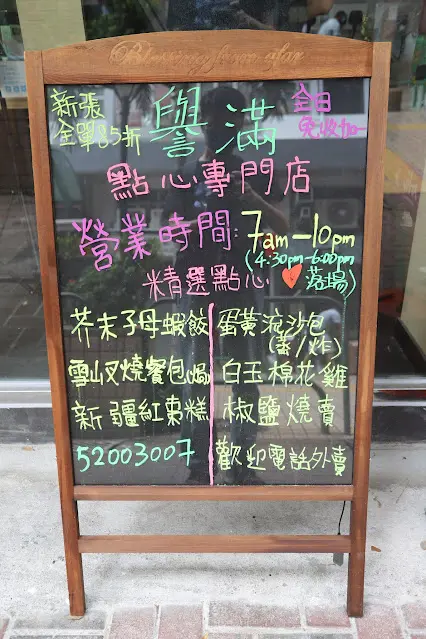 Blessings from afar
新張
全單85折
譽滿
全日
免收加一
點心專門店
營業時間:7am-10pm
(4:30pm-6:00pm
落場)
精選點心
芥末子母蝦餃
雪山叉燒餐包(焗)
新疆紅棗糕
52003007
蛋黃流沙包
(蒸/炸)
白玉棉花雞
椒鹽燒賣
歡迎電話外賣